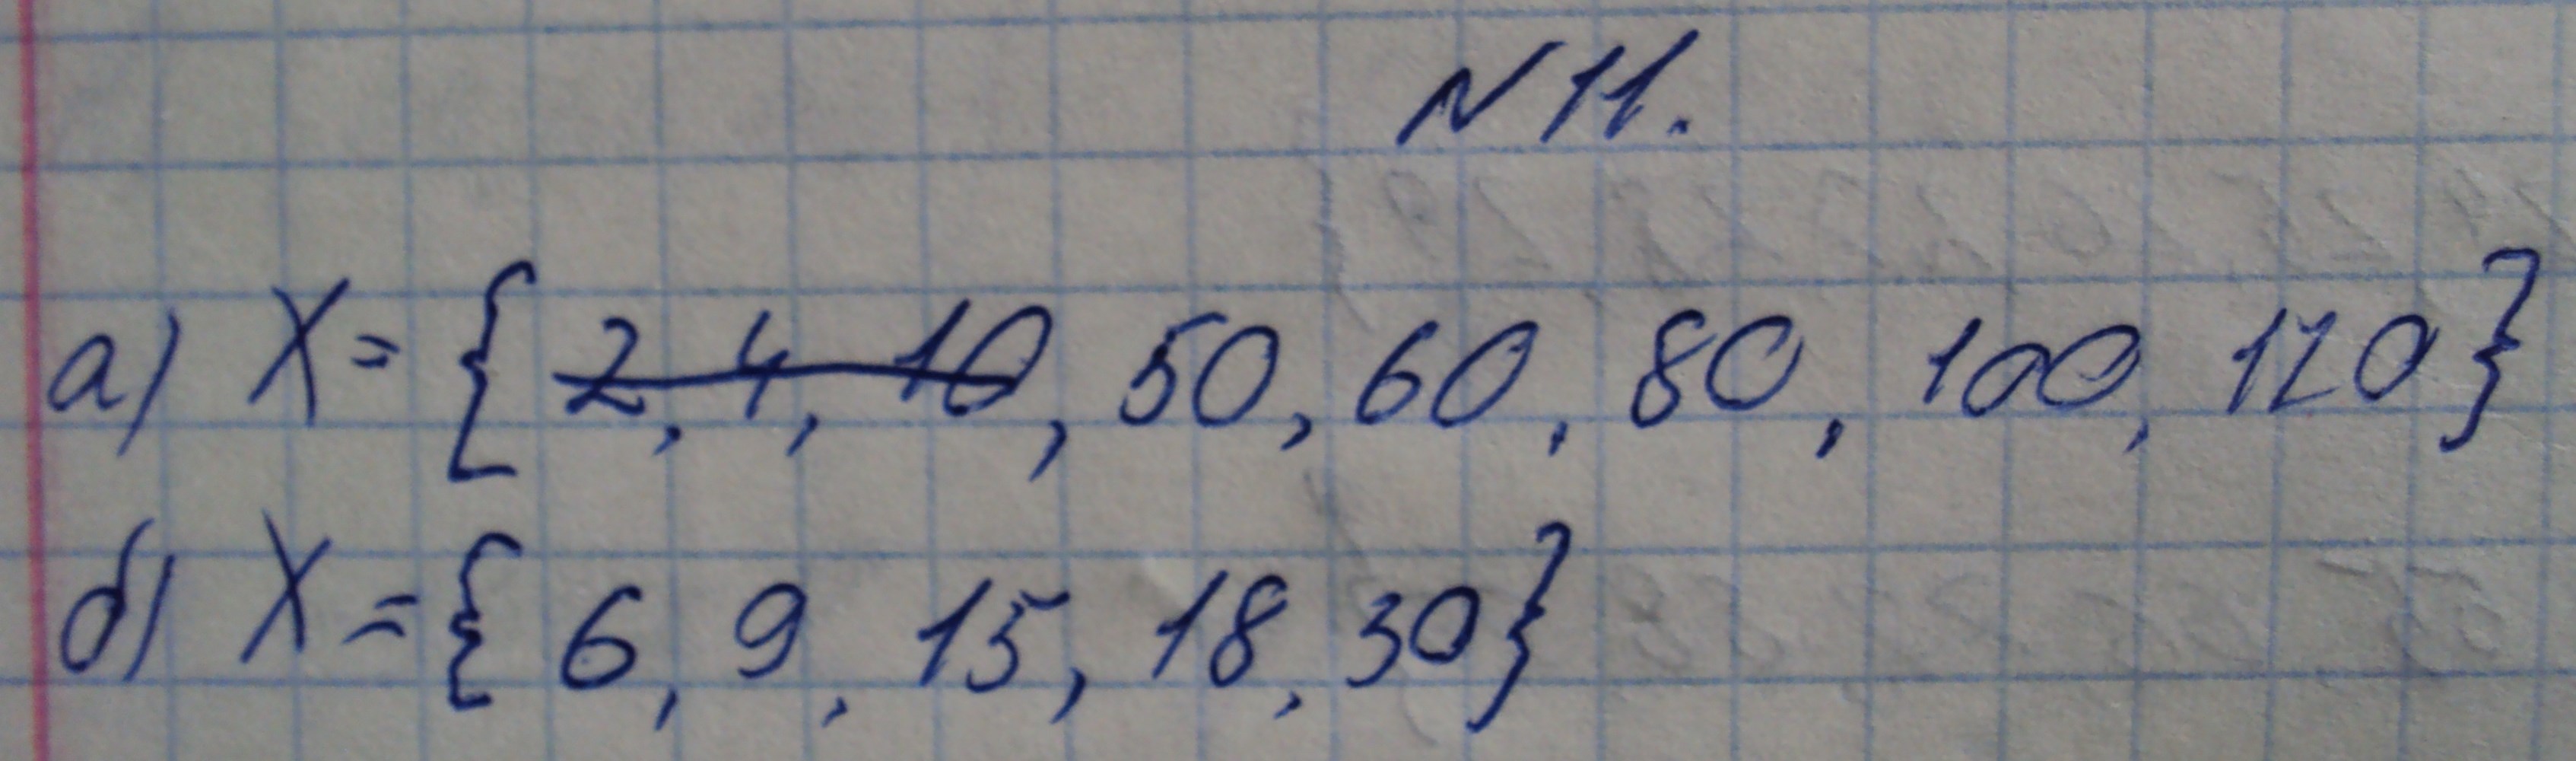 N 11.
а) X = { 2, 4, 10, 50, 60, 80, 100, 120 }
б) X = { 6, 9, 15, 18, 30 }